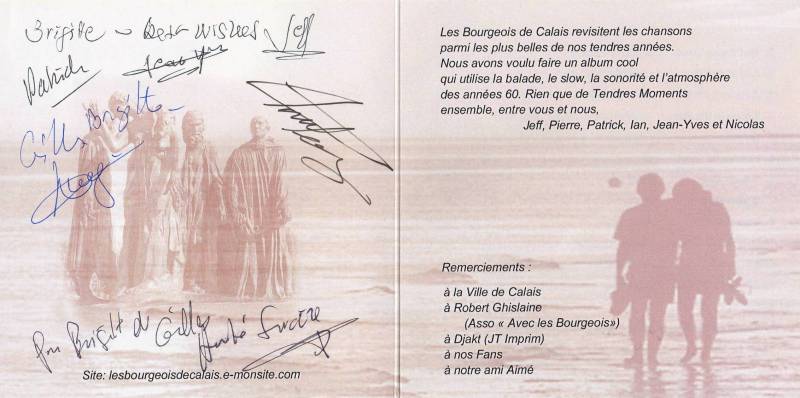 Brigitte - Best wishes Jeff
Patrick
Jean-Yves
Gilles Brigitte
Pour Brigitte et Gilles
Amitié Sincère
Site: lesbourgeoisdecalais.e-monsite.com
Les Bourgeois de Calais revisitent les chansons
parmi les plus belles de nos tendres années.
Nous avons voulu faire un album cool
qui utilise la balade, le slow, la sonorité et l'atmosphère
des années 60. Rien que de Tendres Moments
ensemble, entre vous et nous,
Jeff, Pierre, Patrick, Ian, Jean-Yves et Nicolas
Remerciements :
à la Ville de Calais
à Robert Ghislaine
(Asso « Avec les Bourgeois»)
à Djakt (JT Imprim)
à nos Fans
à notre ami Aimé